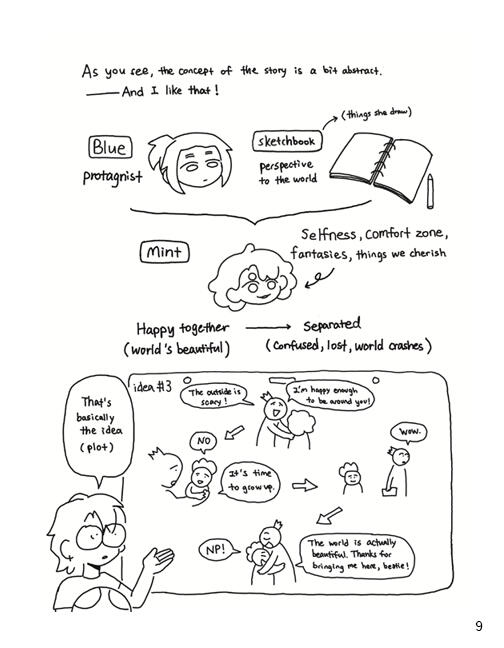 As you see, the concept of the story is a bit abstract.
——And I like that!
(things she draw)
Blue
sketchbook
protagnist
perspective
to the world
Mint
Selfness, Comfort zone,
fantasies, things we cherish
Happy together → Separated
(world's beautiful) (Confused, lost, world crashes)
That's
basically
the idea
(plot)
idea #3
The outside is
scary!
I'm happy enough
to be around you!
NO
It's time
to grow up.
Wow.
NP!
The world is actually
beautiful. Thanks for
bringing me here, bestie!
9